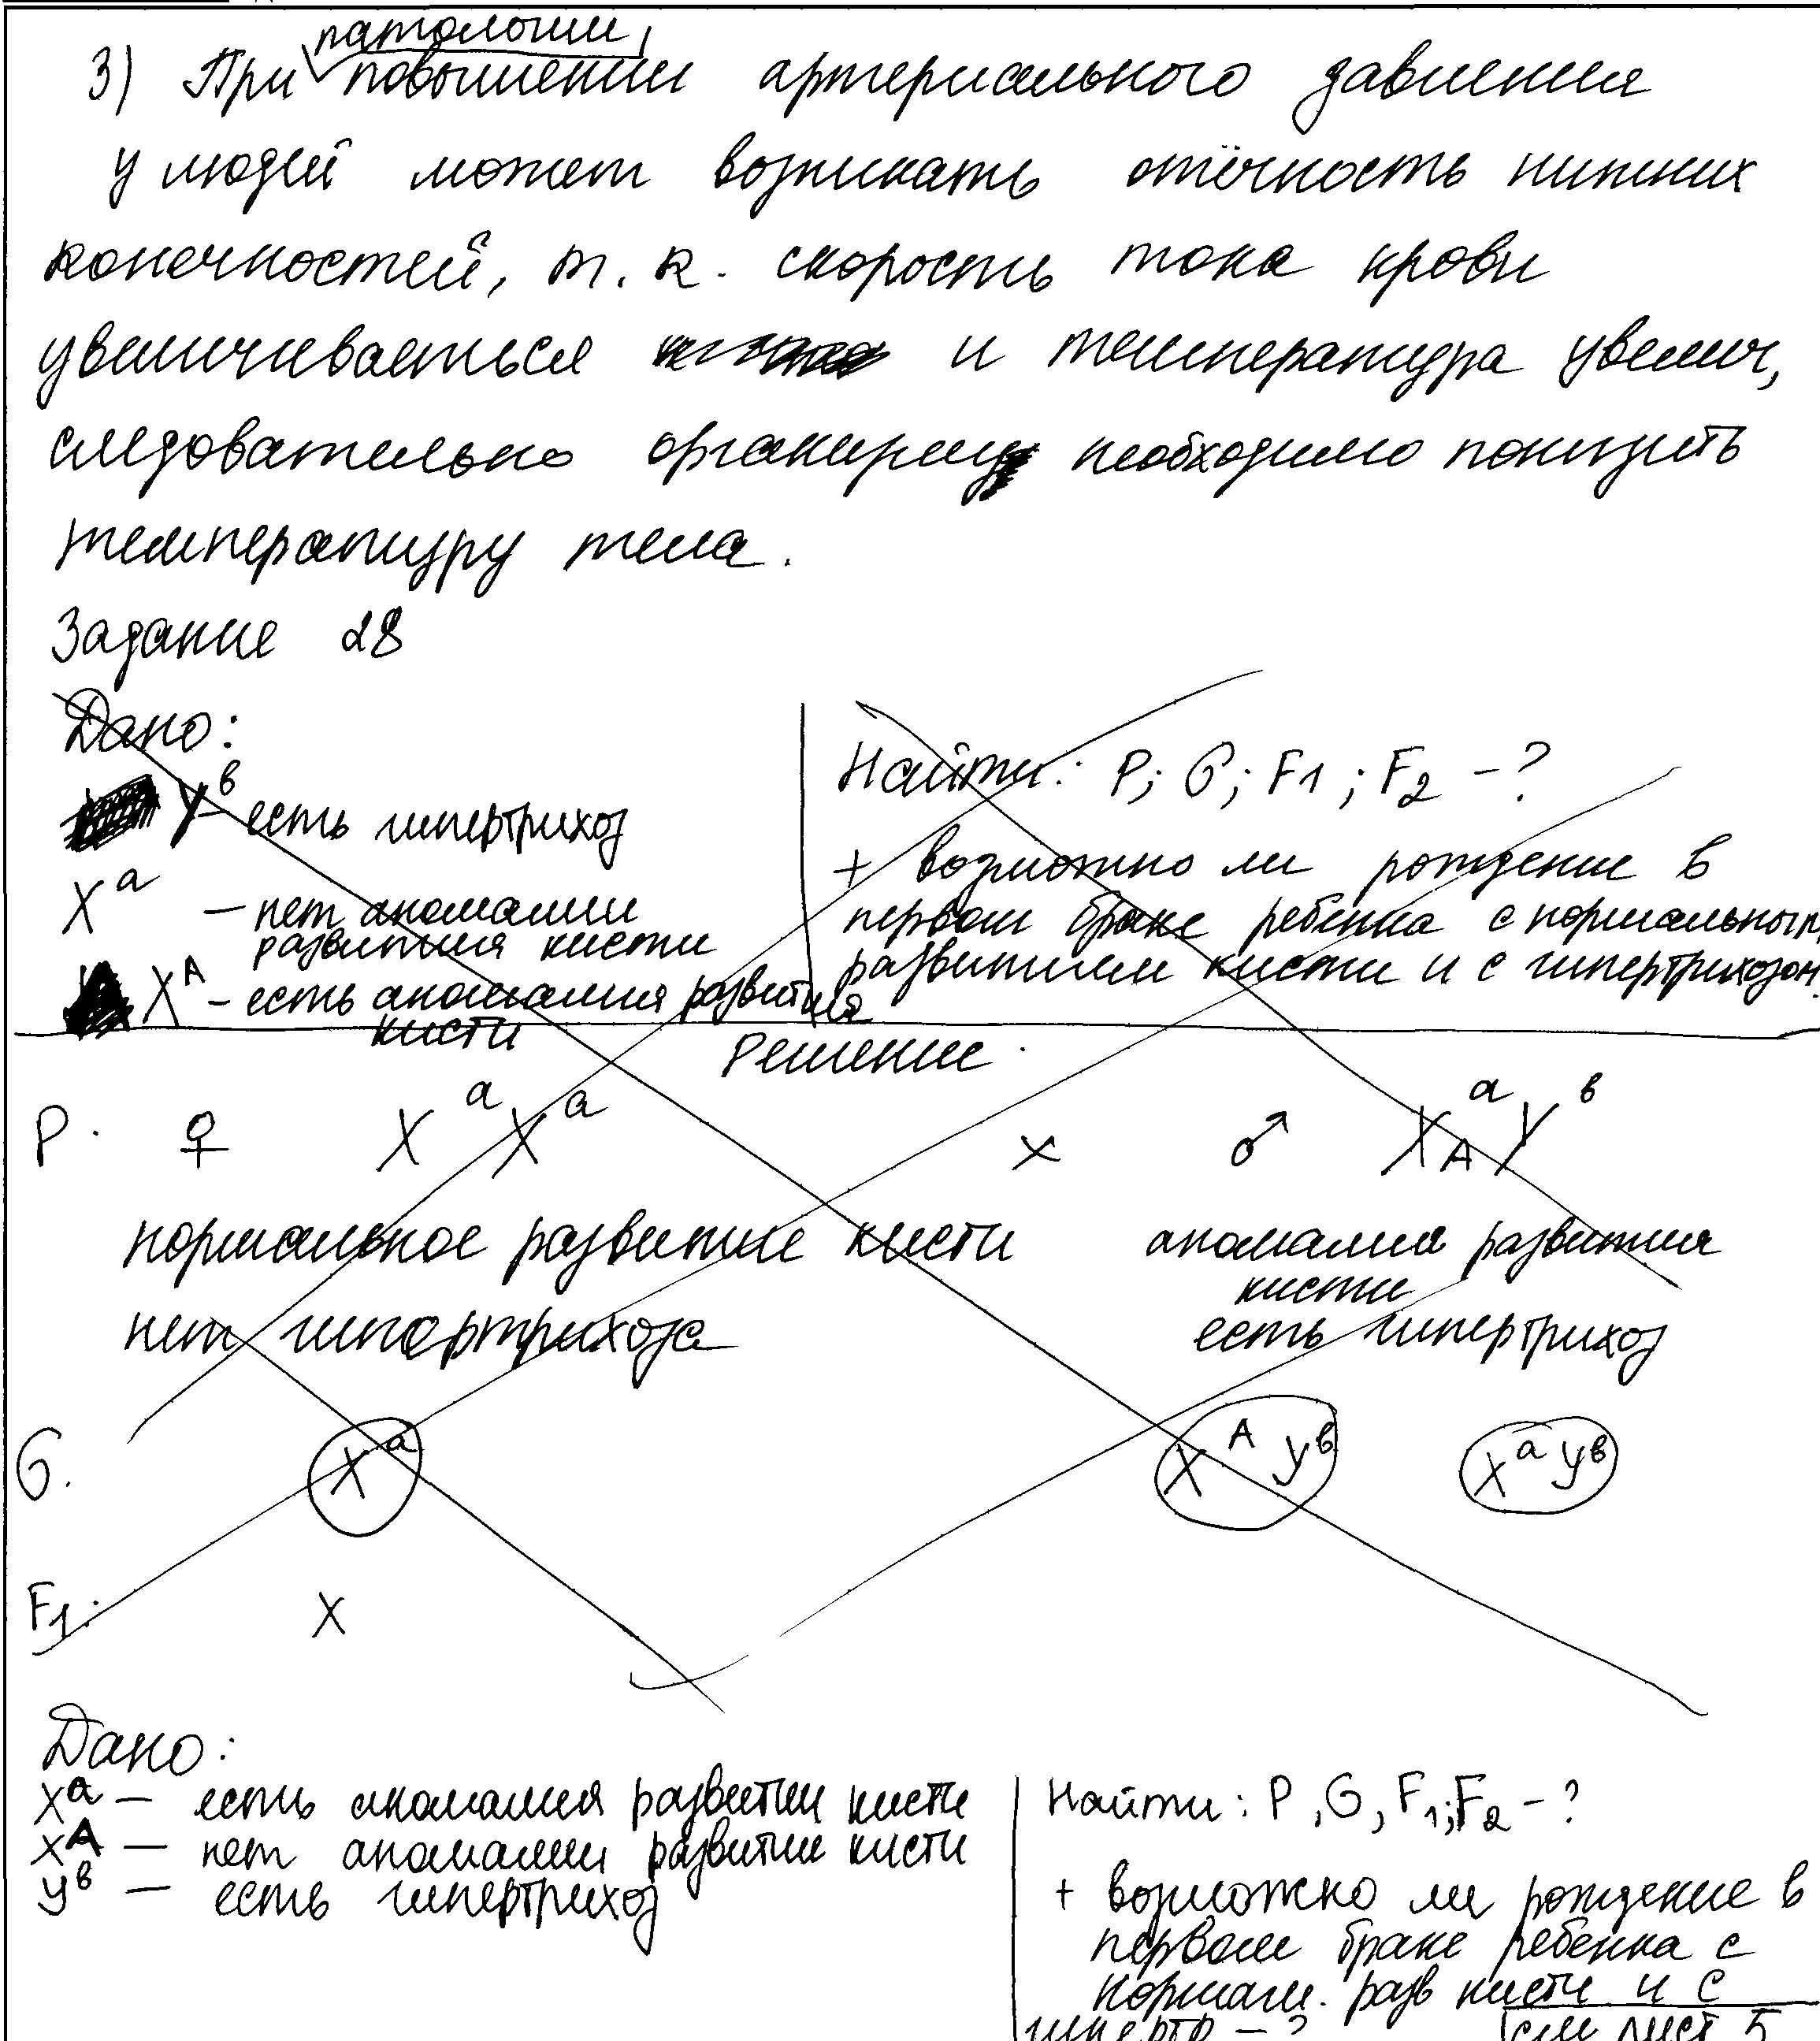 патологии,
3) При повышении артериального давления
у людей может возникать отёчность нижних
конечностей, т. к. скорость тока крови
увеличиваеться и температура увелич,
следовательно организму необходимо понизить
температуру тела.
Задание 28
Дано:
Y^в – есть гипертрихоз
X^a – нет аномалии
развития кисти
X^A – есть аномалия развития
кисти
Найти: P; G; F1; F2 – ?
+ возможно ли рождение в
первом браке ребенка с нормальным
развитием кисти и с гипертрихозом
Решение.
P. ♀ X^a X^a x ♂ X^a_A Y^в
нормальное развитие кисти аномалия развития
кисти
нет гипертрихоза есть гипертрихоз
G. X^a X^A Y^в X^a Y^в
F1. X
Дано:
X^a – есть аномалия развитии кисти
X^A – нет аномалии развитие кисти
Y^в – есть гипертрихоз
Найти: P, G, F1; F2 – ?
+ возможно ли рождение в
первом браке ребенка с
нормал. разв кисти и с
гипертр – ? см лист 5